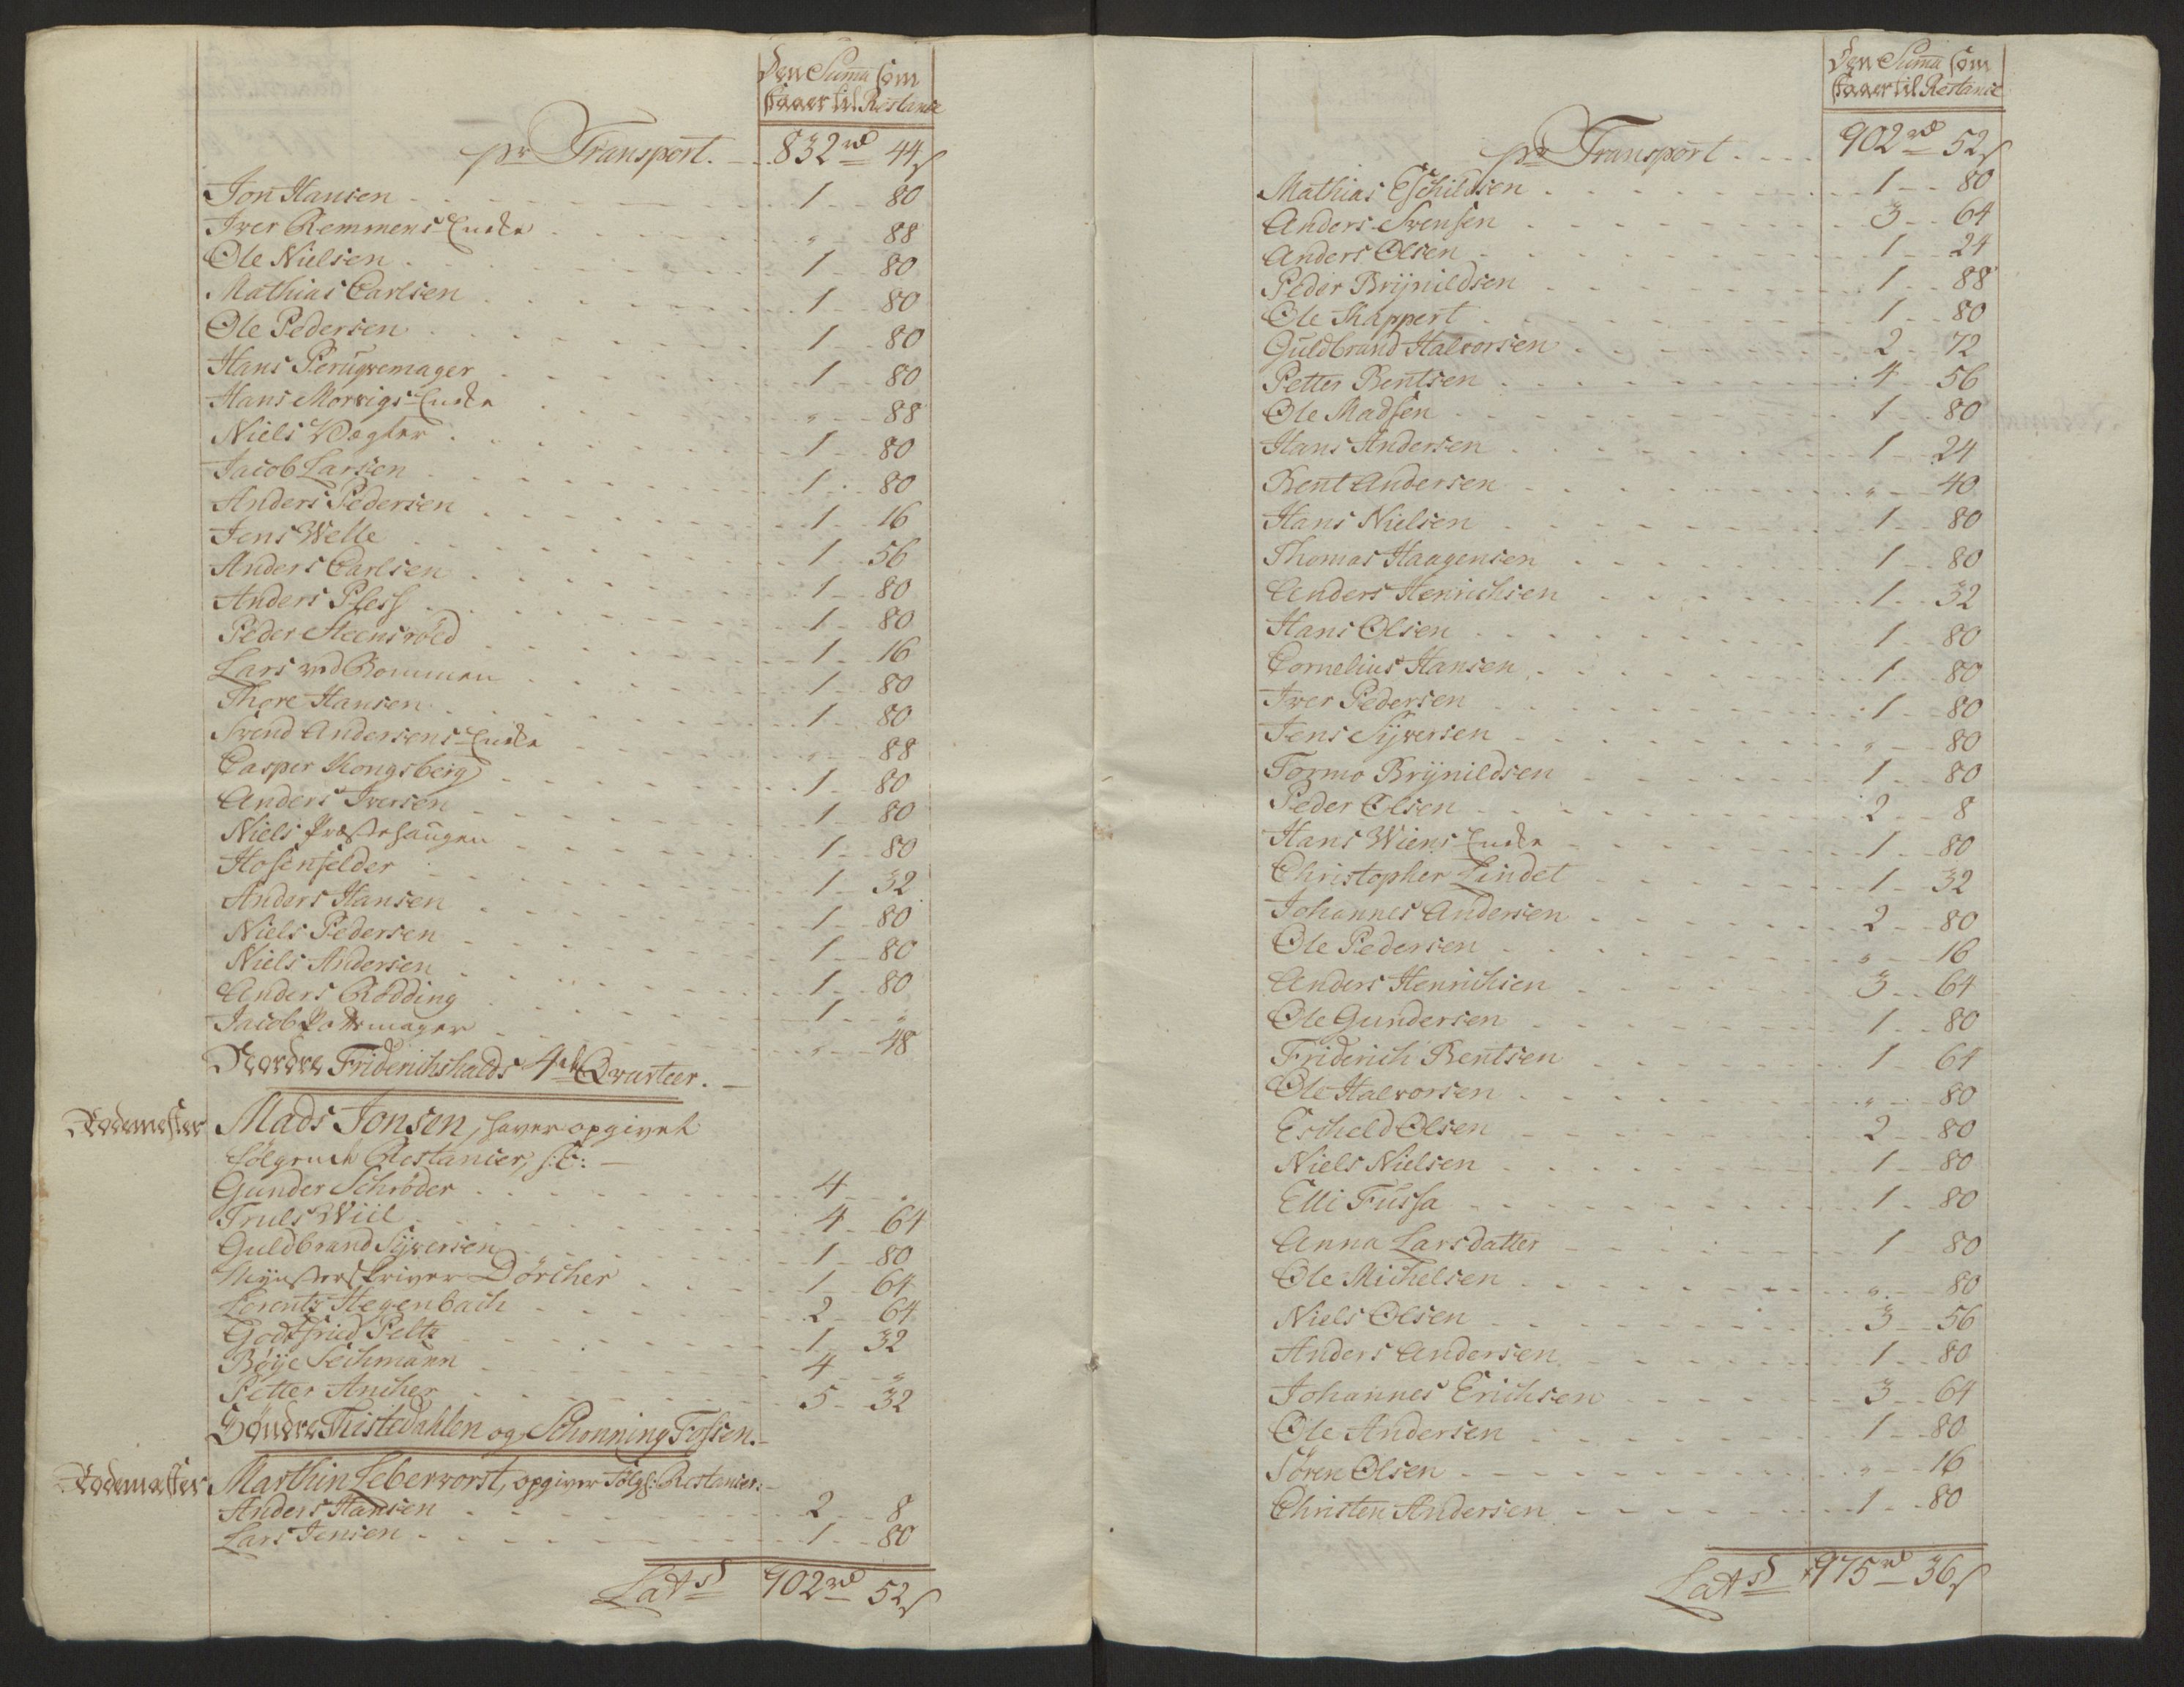 Den Summa som
staaer til Restance
pr Transport. 832 rd 44 s
Jon Hansen 1 80
Iver Remmens Encke " 88
Ole Nielsen 1 80
Mathias Carlsen 1 80
Ole Pedersen 1 80
Hans Peruqvemager 1 80
Hans Morvigs Encke " 88
Niels Vægter 1 80
Jacob Larsen 1 80
Anders Pedersen 1 16
Jens Welle 1 56
Anders Carlsen 1 80
Anders Pless 1 80
Peder Steensröed 1 16
Lars ved Bommen 1 80
Thore Hansen 1 80
Svend Andersens Encke " 88
Casper Kongsberg 1 80
Anders Iversen 1 80
Niels Præstehaugen 1 80
Hosenfelder 1 32
Anders Hansen 1 80
Niels Pedersen 1 80
Niels Andersen 1 80
Anders Rödding 1 "
Jacob Pottemager " 48
Nordre Friderichshalds 4de Qvarteer.
Rodemester Mads Jonsen, haver opgivet
fölgende Restancier, s:c:
Gunder Schröder 4 "
Truls Wiil 4 64
Guldbrand Syversen 1 80
Mynsterskriver Dörcher 1 64
Lorentz Hegenbach 2 64
Godtfried Peltz 1 32
Böye Seihmann 4 "
Petter Ancher 5 32
Söndre Thistedahlen og Schonning Fossen.
Rodemester Marthin Lebervorst, opgiver fölg: Restancier:
Anders Hansen 2 8
Lars Jensen 1 80
Lats 902 rd 52 s
Den Summa som
staaer til Restance
pr Transport 902 rd 52 s
Mathias Eschildsen 1 80
Anders Svensen 3 64
Anders Olsen 1 24
Peder Brynildsen 1 88
Ole Knappert 1 80
Guldbrand Halvorsen 2 72
Petter Bentsen 4 56
Ole Madsen 1 80
Hans Andersen 1 24
Bent Andersen " 40
Hans Nielsen 1 80
Thomas Haagensen 1 80
Anders Henrichsen 1 32
Hans Olsen 1 80
Cornelius Hansen 1 80
Iver Pedersen 1 80
Jens Syversen " 80
Tormo Brynildsen 1 80
Peder Olsen 2 8
Hans Wiens Encke 1 80
Christopher Lindet 1 32
Johannes Andersen 2 80
Ole Pedersen " 16
Anders Henrichsen 3 64
Ole Gundersen 1 80
Friderich Bentsen 1 64
Ole Halvorsen " 80
Escheld Olsen 2 80
Niels Nielsen 1 80
Elli Fussa 1 80
Anna Larsdatter 1 80
Ole Michelsen " 80
Niels Olsen 3 56
Anders Andersen 1 80
Johannes Erichsen 3 64
Ole Andersen 1 80
Sören Olsen " 16
Christen Andersen 1 80
Lats 975 rd 36 s